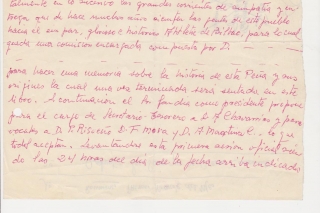 en lo sucesivo sus grandes corrientes de simpatía y en-
que de hace muchos años sienten las gentes de este pueblo
hacia el un par, glorioso e histórico Athletic de Bilbao, para lo cual
queda una comisión encargada compuesta por D.
para hacer una memoria sobre la historia de esta Peña y sus
orígenes la cual una vez terminada sera sentada en este
libro. A continuación el Sr. como presidente propone
para el cargo de Secretario Tesorero a D. A. Chavarrias y para
vocales a D. F. Mora y D. A. Martinez C. lo que
todos aceptan. Levantándose esta primera sesión oficial
a las 24 horas del día de la fecha arriba indicada